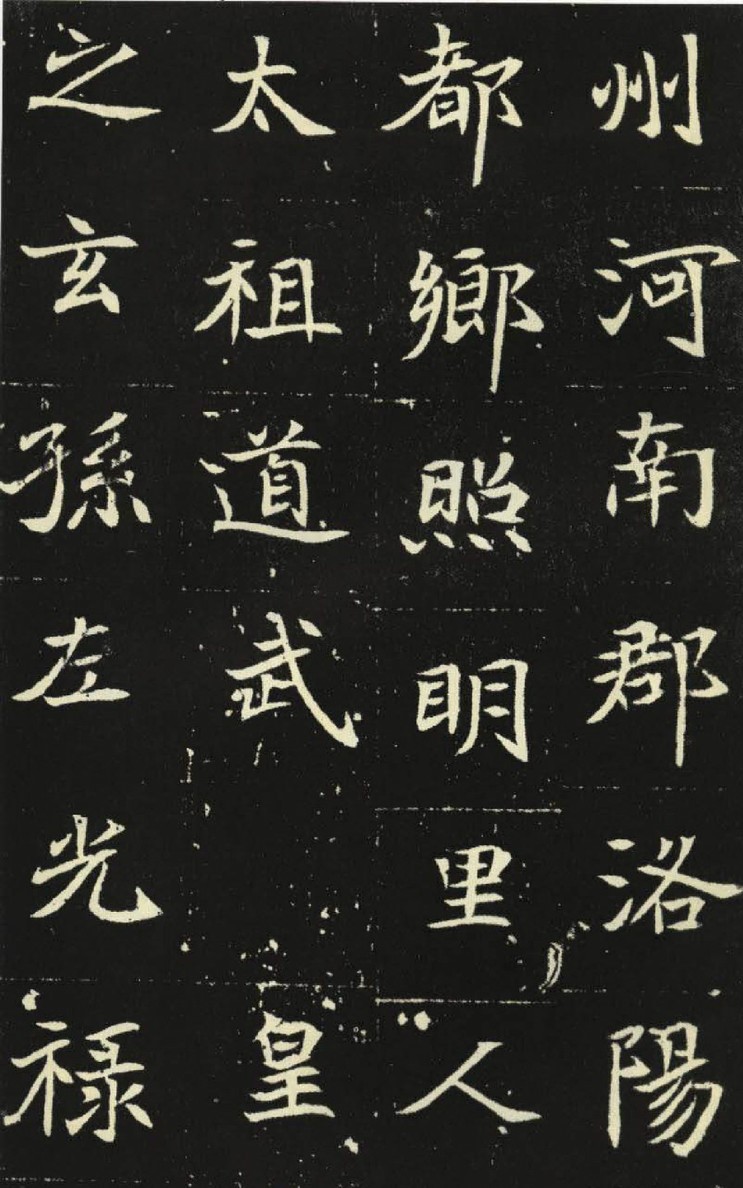 州河南郡洛陽
都鄉照明里人
太祖道武皇
之玄孫左光祿